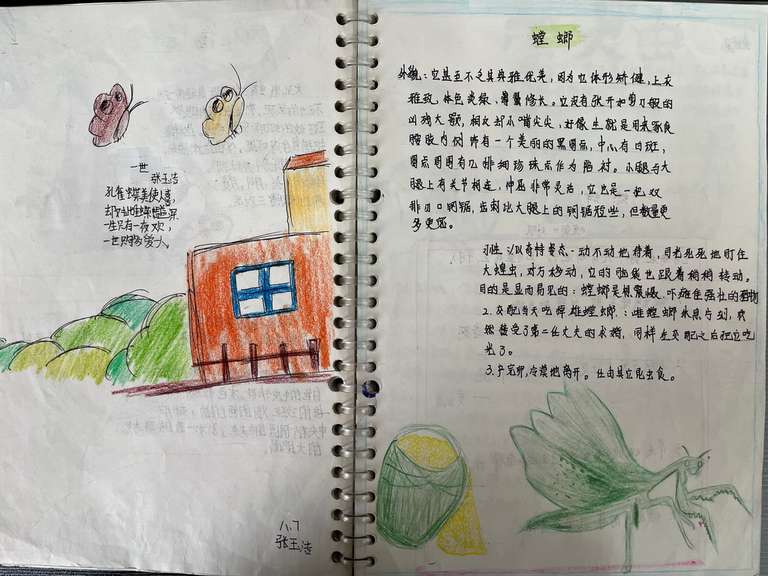 一世
张玉洁
孔雀蝶美使人喜,
一生只有一夜欢,
一世只为爱人。
八.7
张玉洁
螳螂
外貌:它甚至不乏其典雅优美,因为它体形矫健,上衣
雅致,体色淡绿,薄翼修长。它没有张开如剪刀般的
凶残大颚,相反却小嘴尖尖,好像生就是用来啄食
腿肢内侧饰有一个美丽的黑圆点,中心有白斑,
圆点周围有几排细珍珠点作为陪衬。小腿与大
腿上有关节相连,伸屈非常灵活,它也是一把双
排刃口钢锯,齿刺比大腿上的钢锯短些,但数量更
多更密。
习性:1.以奇特姿态一动不动地待着,目光死死地盯住
大蝗虫,对方移动,它的脑袋也跟着稍稍转动。
目的是显而易见的:螳螂是想震慑、吓瘫住强壮的猎物
2.交配当天吃掉雄螳螂。:雌螳螂
然接受了第一任丈夫的求婚,同样在交配之后把它吃
光了。
3.产完卵,冷漠地离开。任由其它昆虫食。